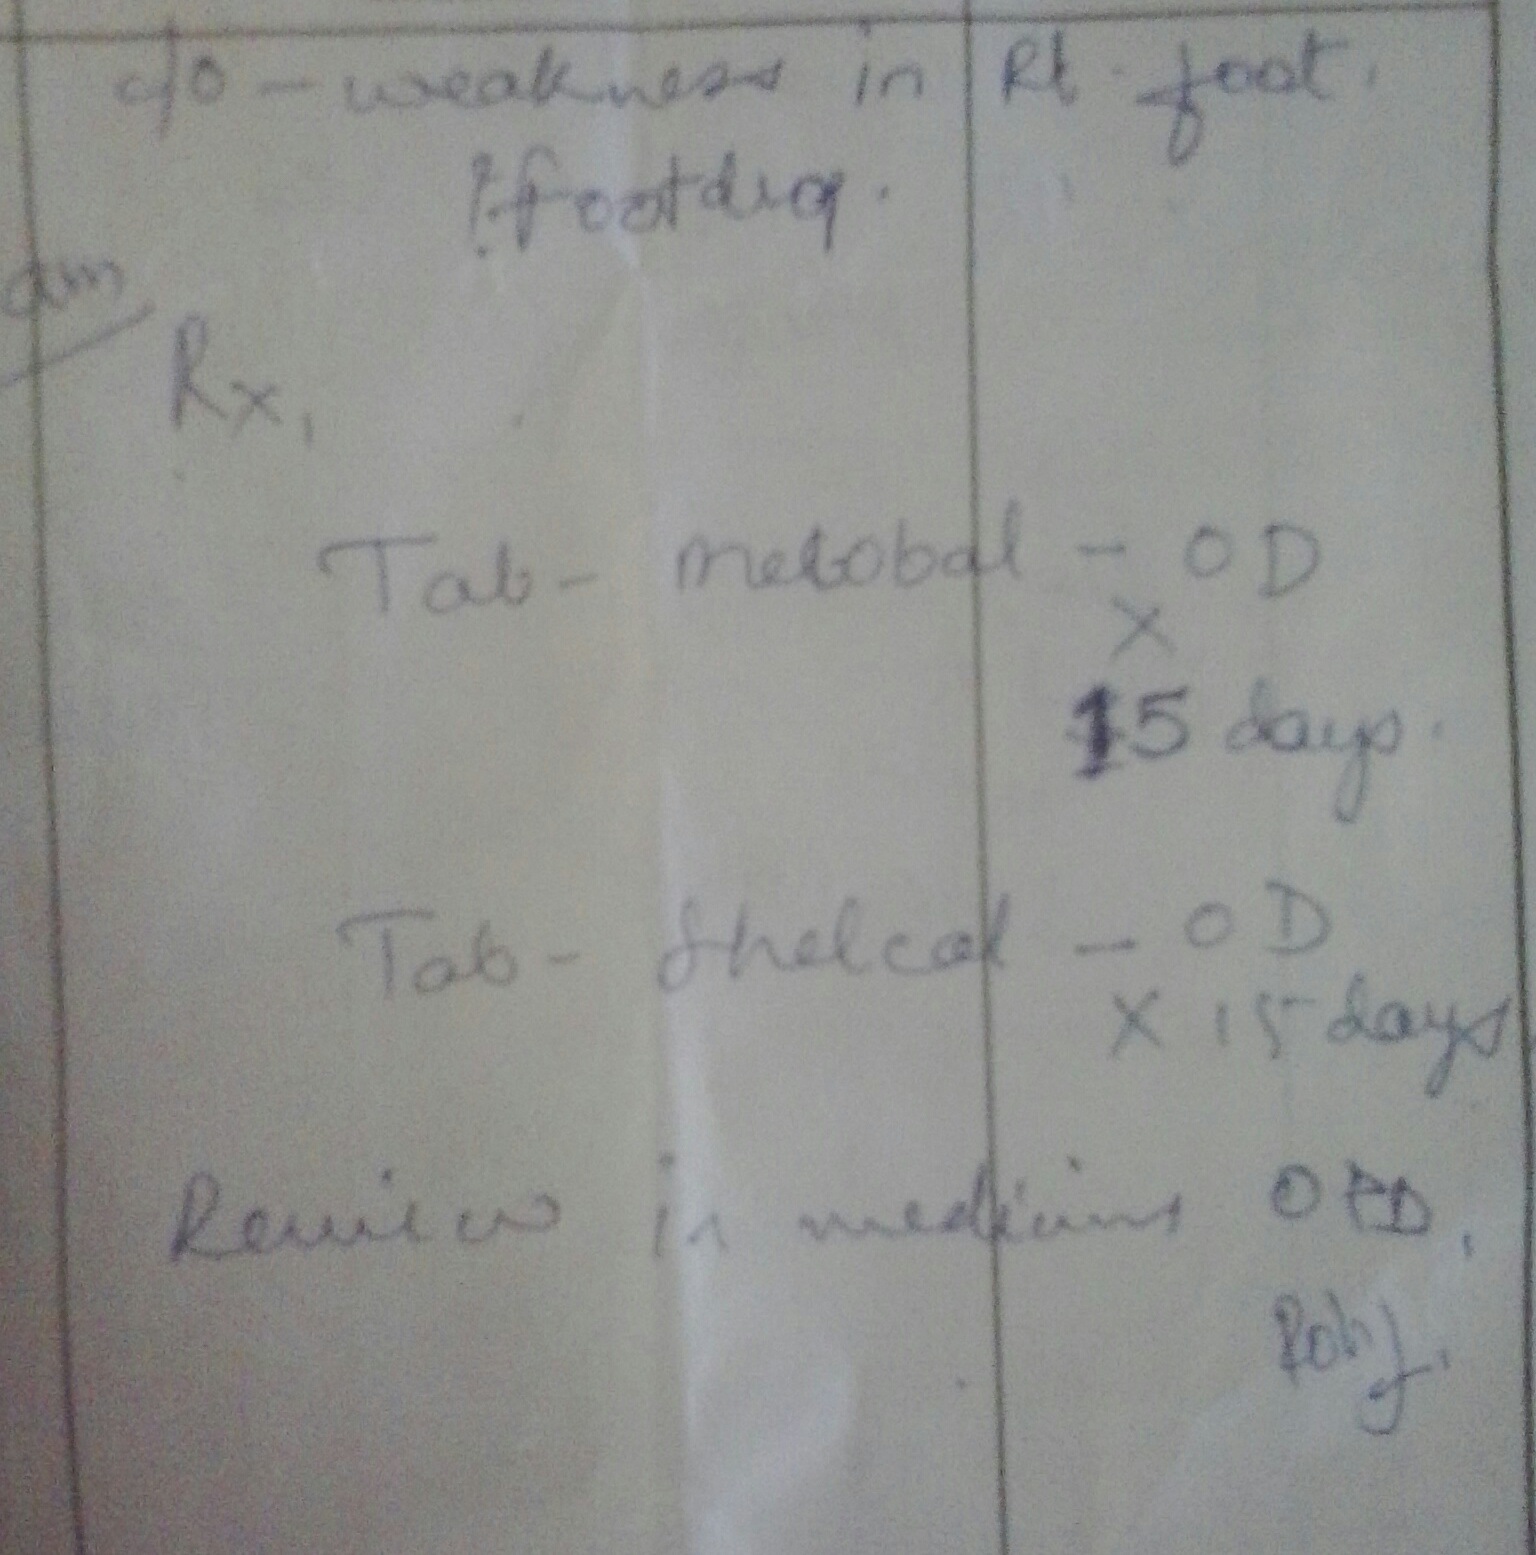 c/o - weakness in Rt foot.
? footdrop.
am
Rx,
Tab - metobal - OD
x
15 days.
Tab - Shelcal - OD
x 15 days
Review in medicine OPD.